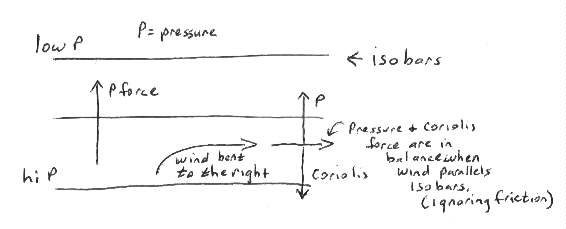 P = pressure
low P
← isobars
P force
P
Pressure + Coriolis
force are in
balance when
wind parallels
isobars.
(ignoring friction)
wind bent
to the right
hi P
Coriolis